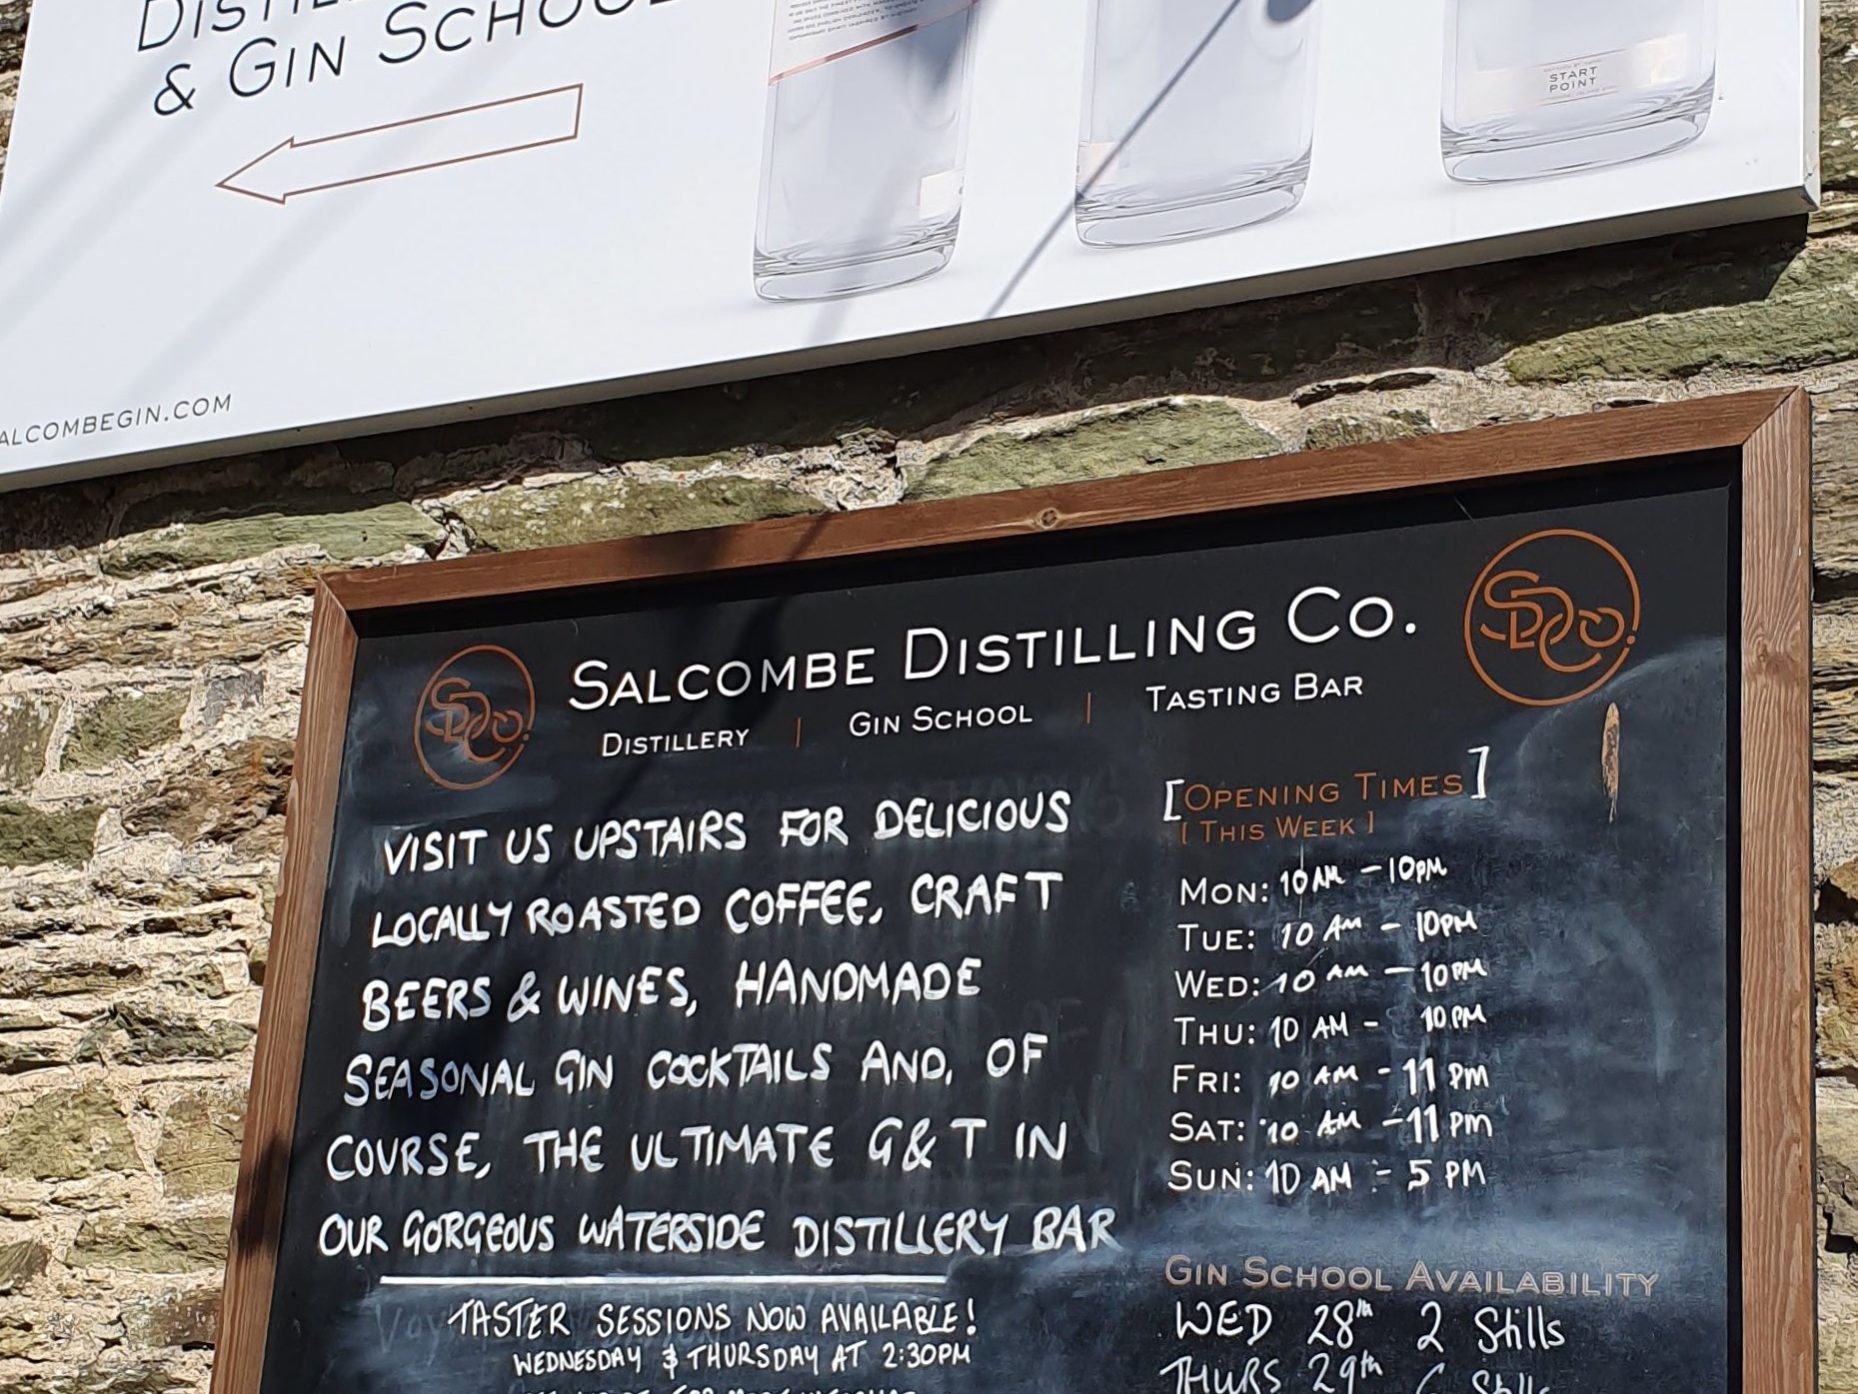 & GIN SCHOOL
START
POINT
ALCOMBEGIN.COM
SALCOMBE DISTILLING CO.
DISTILLERY | GIN SCHOOL | TASTING BAR
SDCo.
SDCo.
VISIT US UPSTAIRS FOR DELICIOUS
LOCALLY ROASTED COFFEE, CRAFT
BEERS & WINES, HANDMADE
SEASONAL GIN COCKTAILS AND, OF
COURSE, THE ULTIMATE G&T IN
OUR GORGEOUS WATERSIDE DISTILLERY BAR
TASTER SESSIONS NOW AVAILABLE!
WEDNESDAY & THURSDAY AT 2:30PM
[OPENING TIMES]
[THIS WEEK]
MON: 10AM - 10PM
TUE: 10 AM - 10PM
WED: 10 AM - 10PM
THU: 10 AM - 10PM
FRI: 10 AM - 11 PM
SAT: 10 AM - 11 PM
SUN: 10 AM - 5 PM
GIN SCHOOL AVAILABILITY
WED 28th 2 Stills
THURS 29th Stills